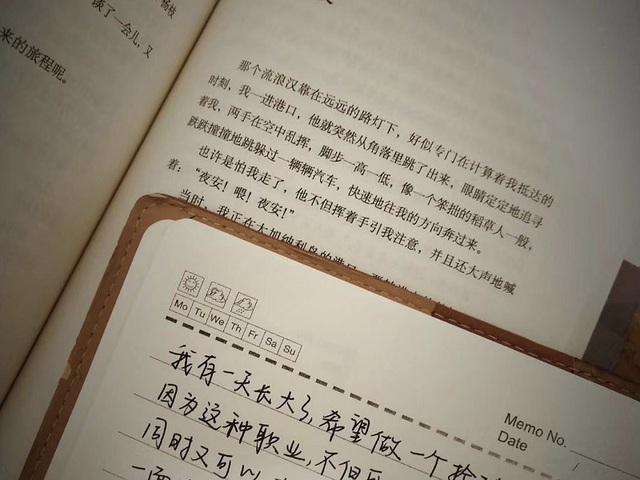 谈了一会儿，又
来的旅程呢。
那个流浪汉靠在远远的路灯下，好似专门在计算着我抵达的
时刻，我一进港口，他就突然从角落里跳了出来，眼睛定定地追寻
着我，两手在空中乱挥，脚步一高一低，像一个笨拙的稻草人一般，
跌跌撞撞地跳躲过一辆辆汽车，快速地往我的方向奔过来。
也许是怕我走了，他不但挥着手引我注意，并且还大声地喊
着：“夜安！喂！夜安！”
当时，我正在大加纳利岛的港口
Mo Tu We Th Fr Sa Su
Memo No.
Date
我有一天长大了，希望做一个拾
因为这种职业，不但
同时又可以
一面